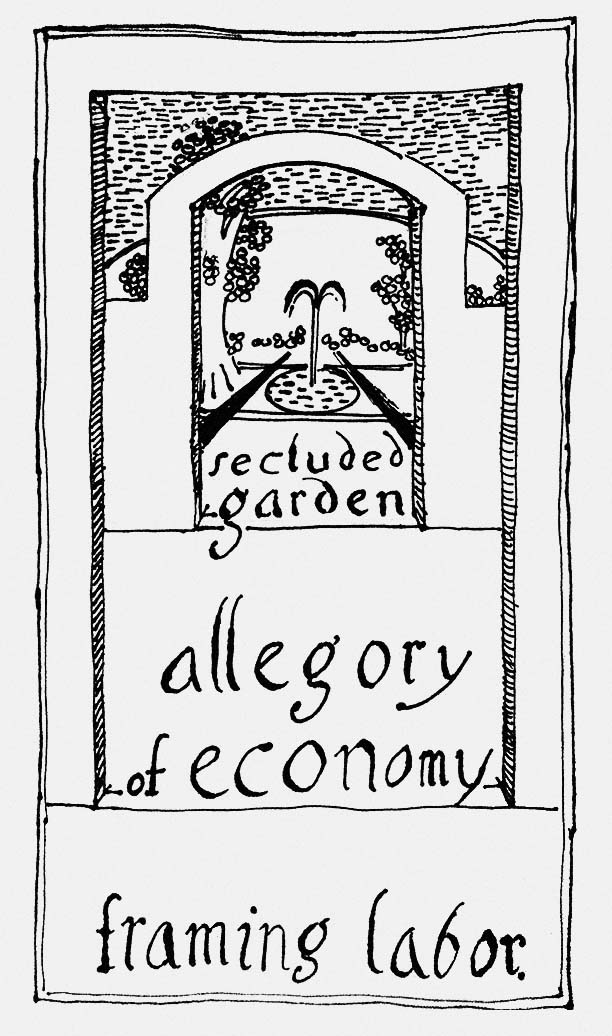 secluded
garden
allegory
of economy
framing labor.